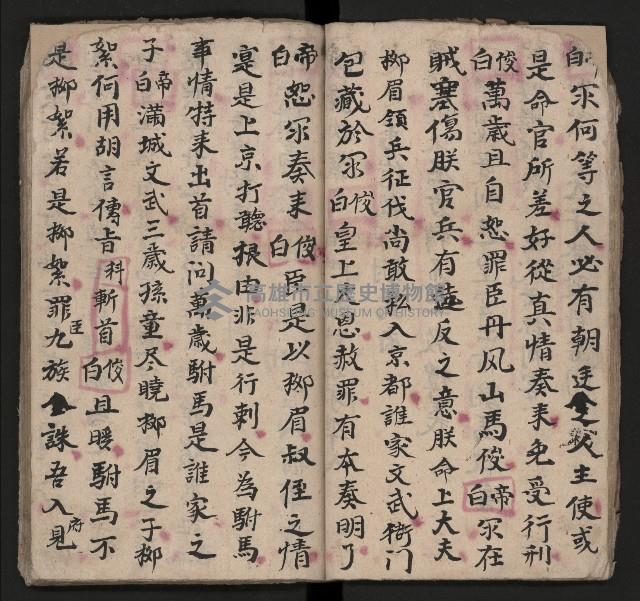 白 尔何等之人必有朝廷之人主使或
是命官所差好從真情奏来免受行刑
俊白 萬歲且自恕罪臣丹风山馬俊 帝白 尔在
賊塞傷朕官兵有違反之意朕命上大夫
柳眉領兵征伐尚敢私入京都誰家文武衙门
包藏於尔 俊白 皇上開恩赦罪有本奏明了
帝白 恕尔奏来 俊白 臣是以柳眉叔侄之情
寔是上京打聼根由非是行刺今為駙馬
事情特来出首請问萬歲駙馬是誰家之
子 帝白 滿城文武三歲孩童尽曉柳眉之子柳
絮何用胡言傳旨 科 斬首 俊白 且暖駙馬不
是柳絮若是柳絮臣罪九族全誅吾入府見
高雄市立歷史博物館
KAOHSIUNG MUSEUM OF HISTORY